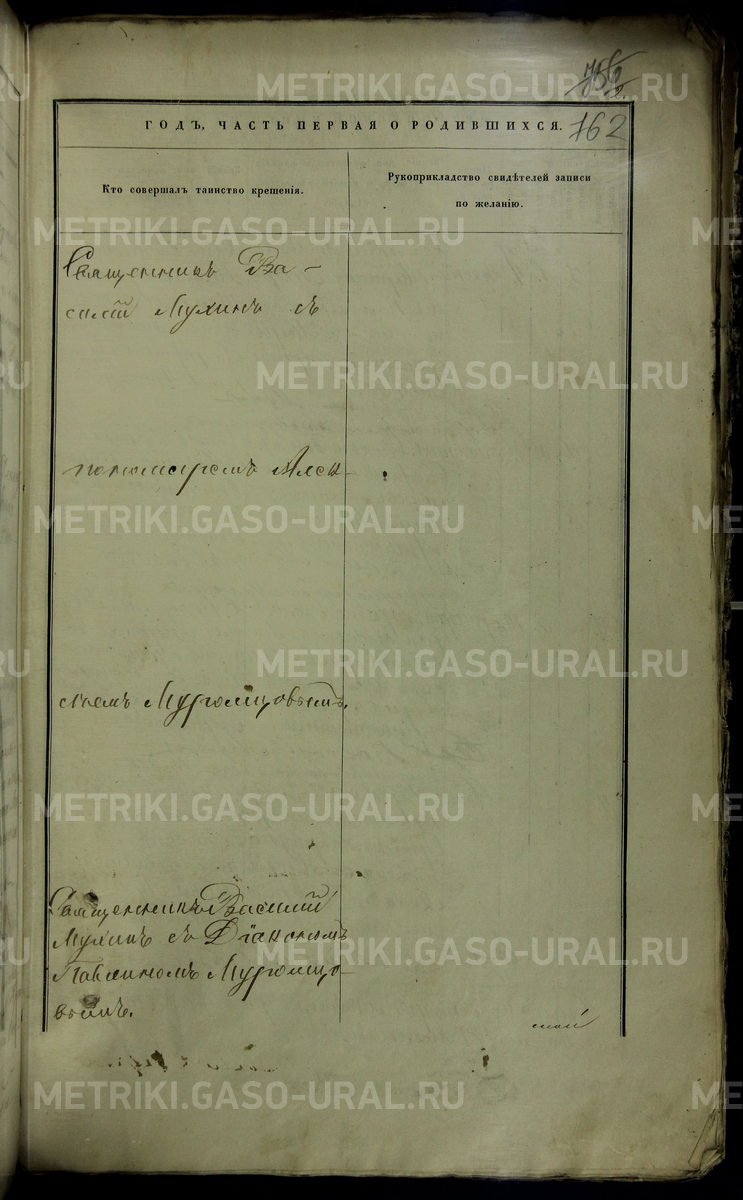 162
ГОДЪ, ЧАСТЬ ПЕРВАЯ О РОДИВШИХСЯ.
Кто совершалъ таинство крещенія.
Рукоприкладство свидѣтелей записи
по желанію.
Священникъ Ва-
силій Мухинъ съ
пономаремъ Алек-
сѣемъ Муромцовымъ.
Священникъ Василій
Мухинъ съ Діакономъ
Павлиномъ Муромцо-
вымъ.
METRIKI.GASO-URAL.RU